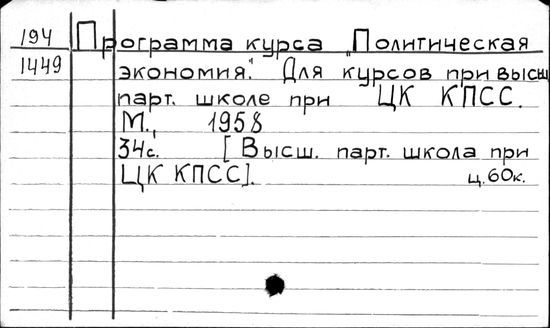 194 Программа курса "Политическая
1449 экономия." Для курсов при высш
парт. школе при ЦК КПСС.
М., 1958
34с. [Высш. парт. школа при
ЦК КПСС]. ц.60к.